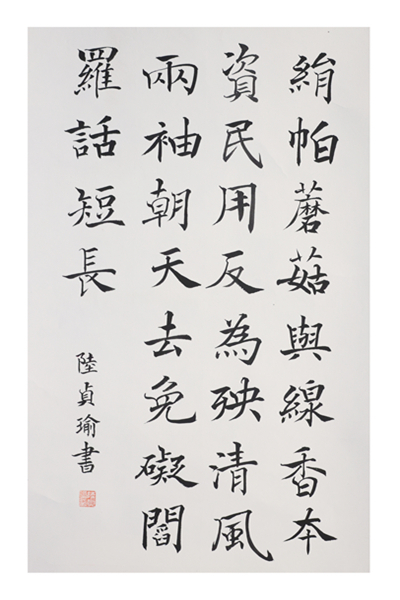 絹帕蘑菇與線香本
資民用反為殃清風
兩袖朝天去免礙閻
羅話短長
陸貞瑜書